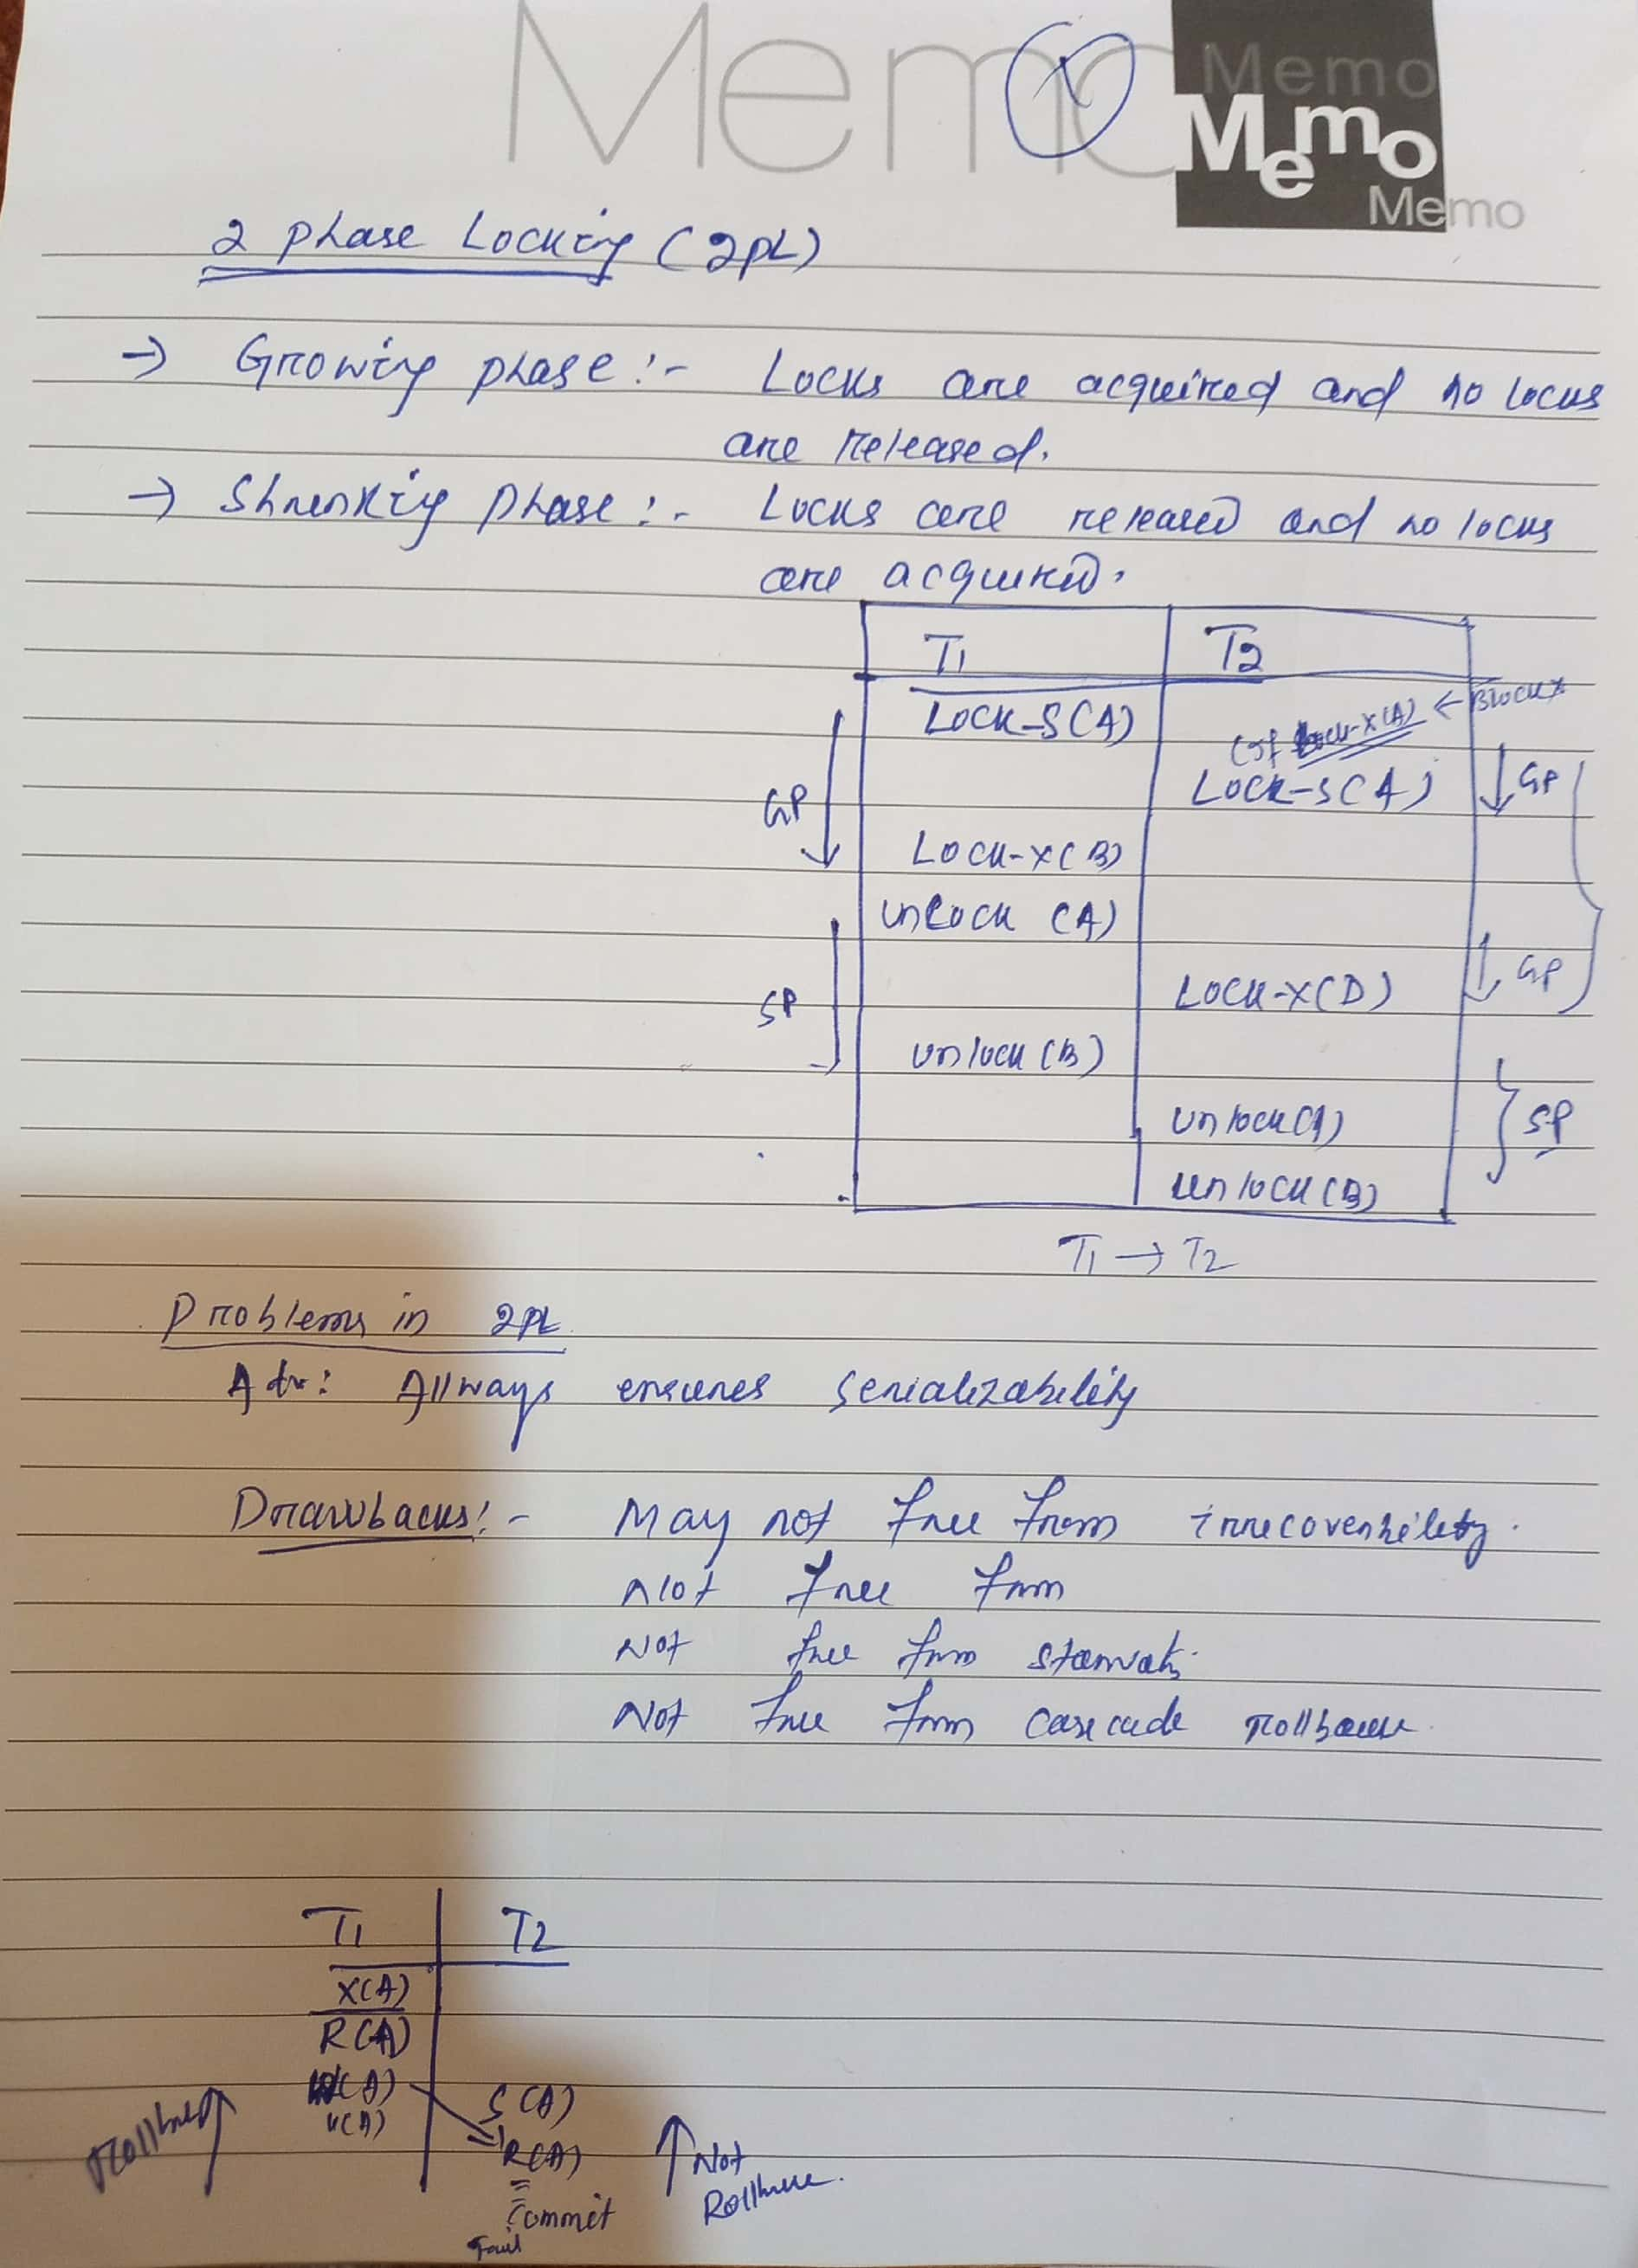 Memo
Memo
Memo
Memo
2 phase Locking (2PL)
→ Growing phase :- Locks are acquired and no locks
are released.
→ Shrinking phase :- Locks are released and no locks
are acquired.
T1 T2
Lock-S(A)
Lock-X(A) ← Block
Lock-S(A) ↓ GP
GP
Lock-X(B)
unlock (A)
Lock-X(D) ↓ GP
SP
unlock (B)
unlock(A) SP
unlock(B)
T1 → T2
Problems in 2PL
Adv: Allways ensures serializability
Drawbacks :- May not free from irrecoverbility.
Not free from
Not free from
Not free from cascade rollback.
T1 T2
X(A)
R(A)
W(A)
S(A)
U(A)
Rollback
R(A)
Not
Rollback
Commit
Fail